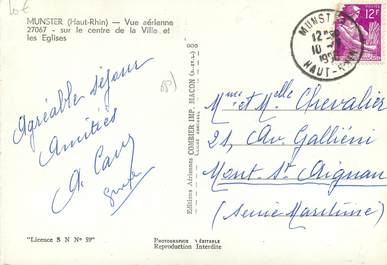 10€
MUNSTER (Haut-Rhin) — Vue aérienne
27067 - sur le centre de la Ville et
les Eglises
Agréable séjour
Amitiés
"Licence S N N° 99"
Editions Aériennes COMBIER IMP. MACON
PHOTOGRAPHIE VÉRITABLE
Reproduction Interdite
MUNSTER
10
HAUT-RHIN
12F
Mme et Melle Chevalier
21, Av. Galliéni
Mont St Aignan
(Seine Maritime)